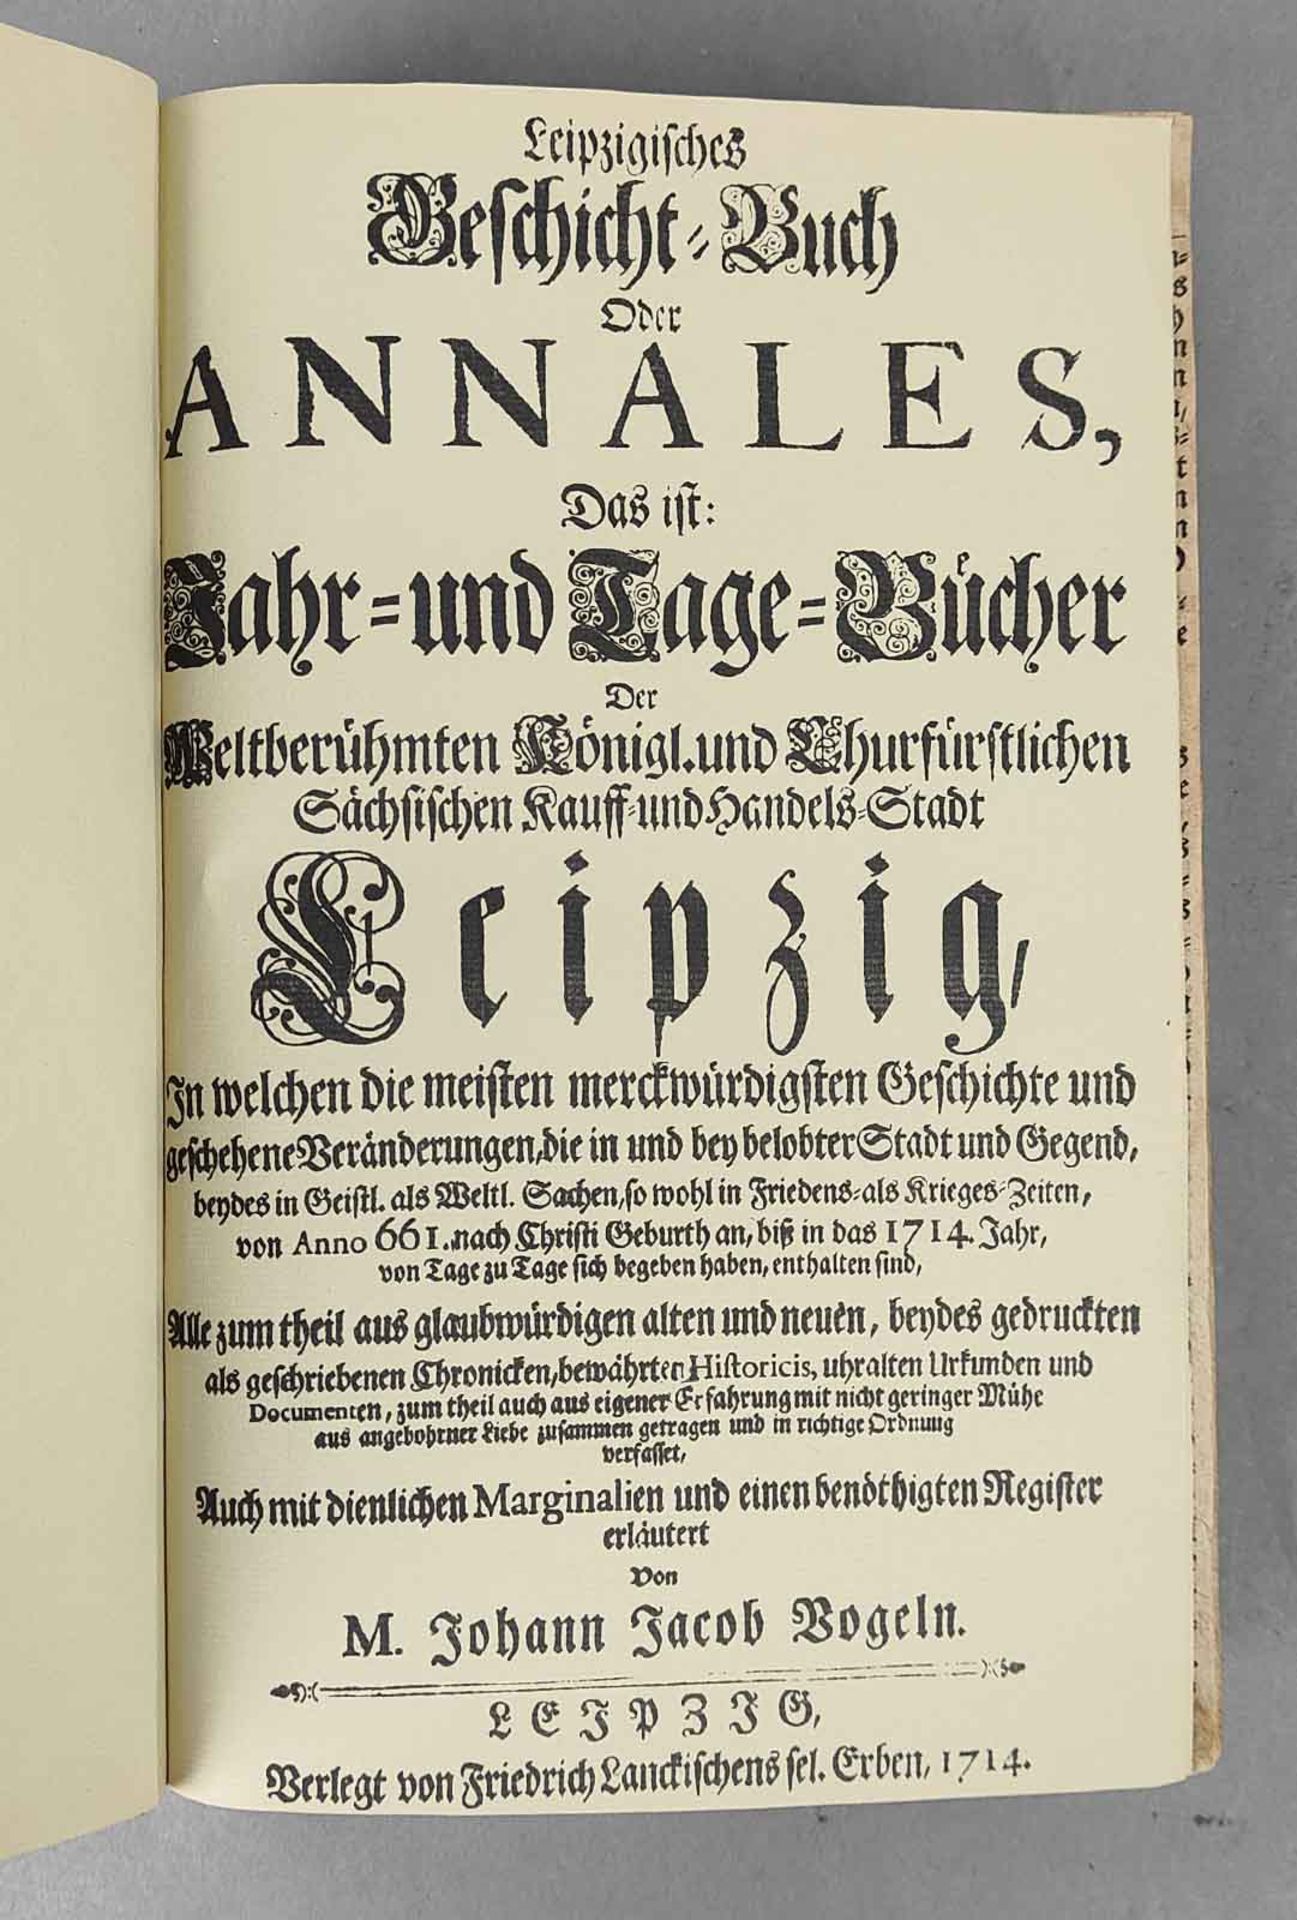 Leipzigisches
Geschicht-Buch
Oder
ANNALES,
Das ist:
Jahr-und Tage-Bücher
Der
Weltberühmten Königl. und Churfürstlichen
Sächsischen Kauff-und Handels-Stadt
Leipzig/
In welchen die meisten merckwürdigsten Geschichte und
geschehene Veränderungen, die in und bey belobter Stadt und Gegend,
beydes in Geistl. als Weltl. Sachen, so wohl in Friedens-als Krieges-Zeiten,
von Anno 661. nach Christi Geburth an, biß in das 1714. Jahr,
von Tage zu Tage sich begeben haben, enthalten sind,
Alle zum theil aus glaubwürdigen alten und neuen, beydes gedruckten
als geschriebenen Chronicken, bewährten Historicis, uhralten Urkunden und
Documenten, zum theil auch aus eigener Erfahrung mit nicht geringer Mühe
aus angebohrner Liebe zusammen getragen und in richtige Ordnung
verfasset,
Auch mit dienlichen Marginalien und einen benöthigten Register
erläutert
Von
M. Johann Jacob Vogeln.
LEIPZIG,
Verlegt von Friedrich Lanckischens sel. Erben, 1714.